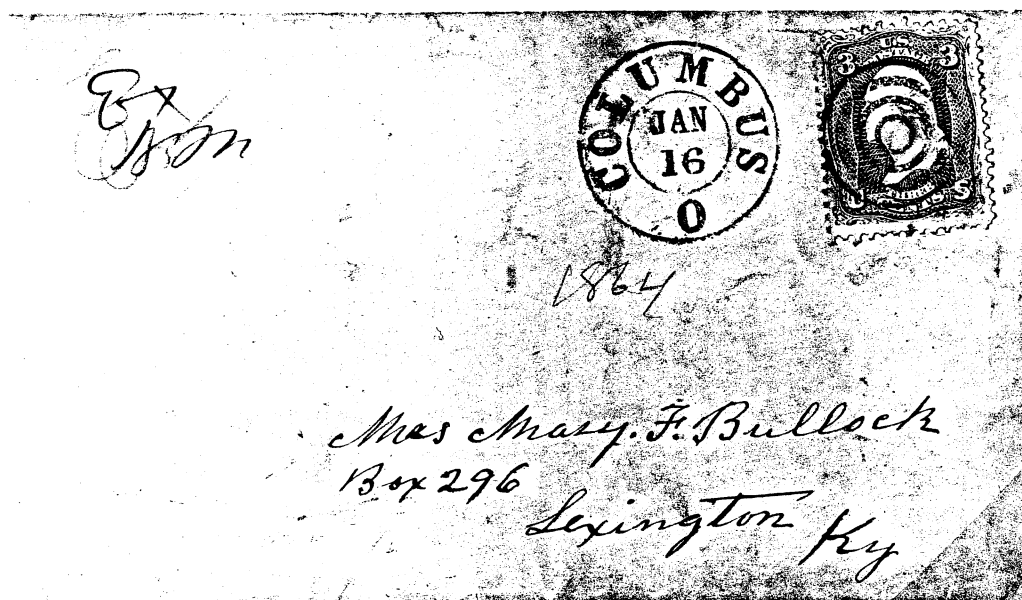 Ex
COLUMBUS
JAN
16
O
3 U.S. 3
U S
1864
Mrs Mary. F. Bullock
Box 296
Lexington Ky